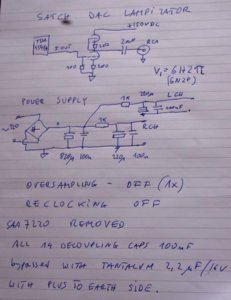 SATCH DAC LAMPIZATOR
+150VDC
TDA 1541A
I OUT
2mF
RCA
V₁ = 6H2П
(6N2P)
POWER SUPPLY
1K
LCH
1K
RCH
820µ
100n
220µ
100n
OVERSAMPLING - OFF (1x)
RECLOCKING OFF
SAA7220 REMOVED
ALL 14 DECOUPLING CAPS 100mF
bypassed WITH TANTALUM 2,2µF/16V
WITH PLUS TO EARTH SIDE.